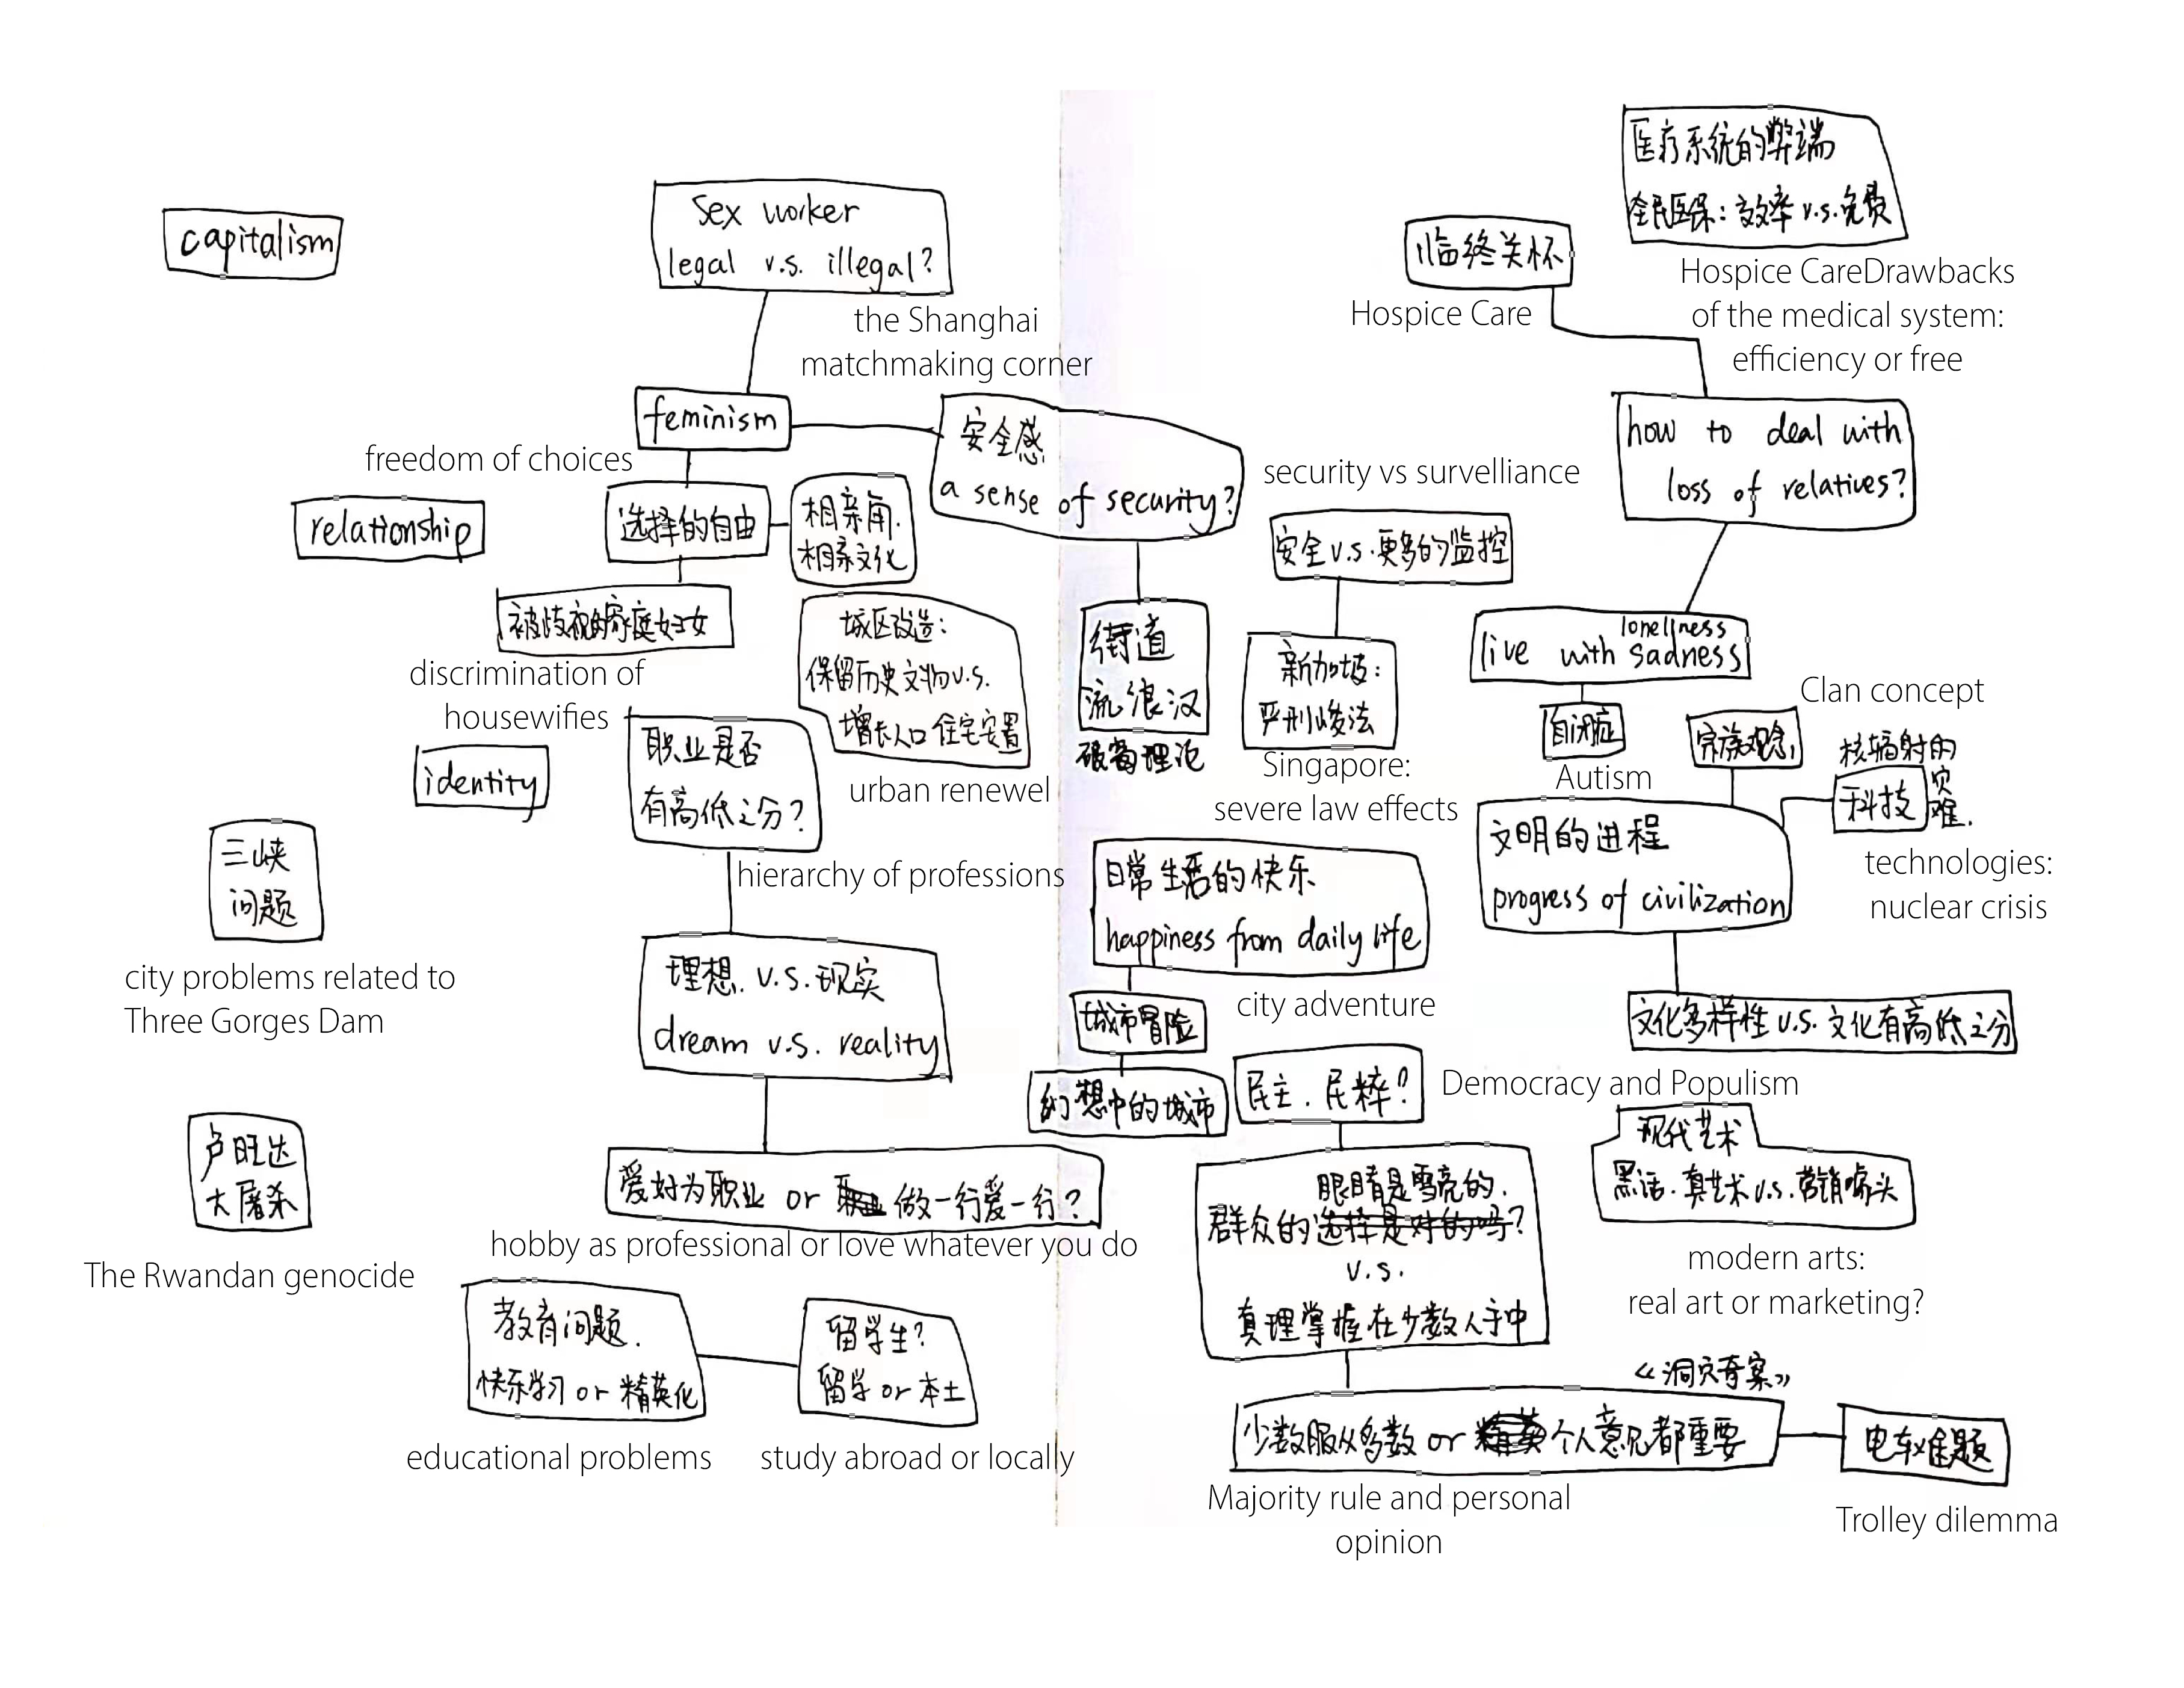 capitalism
Sex worker
legal v.s. illegal?
the Shanghai
matchmaking corner
feminism
安全感
a sense of security?
freedom of choices
选择的自由
相亲角.
相亲文化
relationship
被歧视的家庭妇女
discrimination of
housewifies
城区改造:
保留历史文物v.s.
增长人口住宅安置
urban renewel
identity
职业是否
有高低之分?
hierarchy of professions
三峡
问题
city problems related to
Three Gorges Dam
理想.v.s.现实
dream v.s. reality
卢旺达
大屠杀
The Rwandan genocide
爱好为职业 or 做一行爱一行?
hobby as professional or love whatever you do
教育问题.
快乐学习 or 精英化
educational problems
留学生?
留学 or 本土
study abroad or locally
医疗系统的弊端
全民医保: 效率 v.s. 免费
Hospice CareDrawbacks
of the medical system:
efficiency or free
临终关怀
Hospice Care
how to deal with
loss of relatives?
security vs survelliance
安全 v.s. 更多的监控
街道
流浪汉
破窗理论
新加坡:
严刑峻法
Singapore:
severe law effects
loneliness
live with sadness
自闭症
Autism
Clan concept
宗族观念
核辐射的
灾难.
科技
technologies:
nuclear crisis
文明的进程
progress of civilization
文化多样性 v.s. 文化有高低之分
日常生活的快乐
happiness from daily life
city adventure
城市冒险
幻想中的城市
民主.民粹?
Democracy and Populism
眼睛是雪亮的.
群众的选择是对的吗?
v.s.
真理掌握在少数人手中
现代艺术
黑话.真艺术 v.s. 营销噱头
modern arts:
real art or marketing?
《洞穴奇案》
少数服从多数 or 精英 个人意见都重要
Majority rule and personal
opinion
电车难题
Trolley dilemma